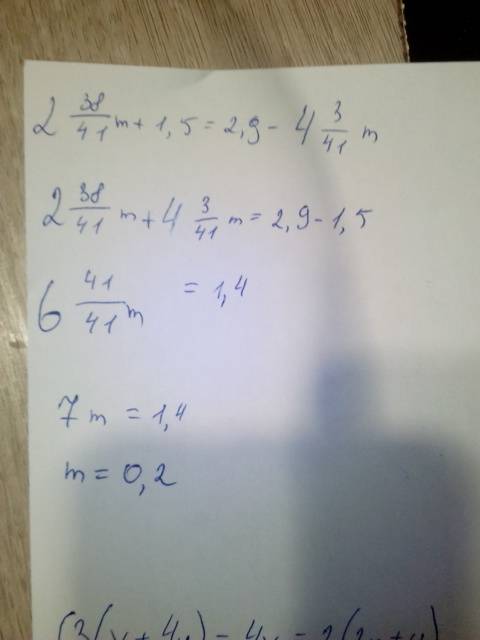 2 38/41 m + 1,5 = 2,9 - 4 3/41 m
2 38/41 m + 4 3/41 m = 2,9 - 1,5
6 41/41 m = 1,4
7 m = 1,4
m = 0,2